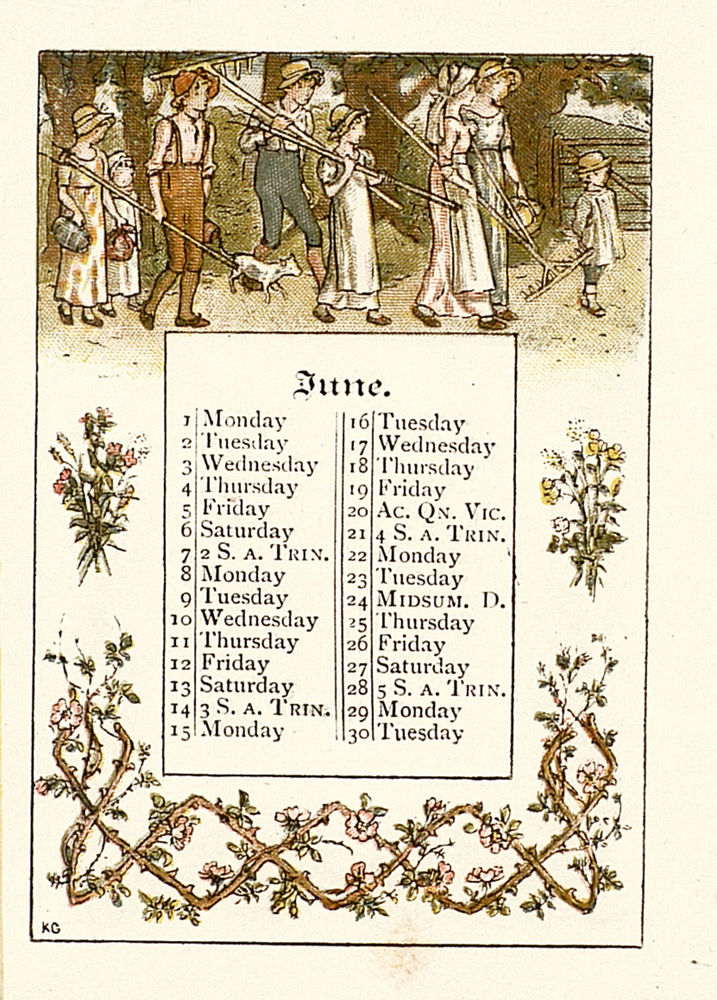 June.
1 Monday
2 Tuesday
3 Wednesday
4 Thursday
5 Friday
6 Saturday
7 2 S. A. TRIN.
8 Monday
9 Tuesday
10 Wednesday
11 Thursday
12 Friday
13 Saturday
14 3 S. A. TRIN.
15 Monday
16 Tuesday
17 Wednesday
18 Thursday
19 Friday
20 AC. QN. VIC.
21 4 S. A. TRIN.
22 Monday
23 Tuesday
24 MIDSUM. D.
25 Thursday
26 Friday
27 Saturday
28 5 S. A. TRIN.
29 Monday
30 Tuesday
KG